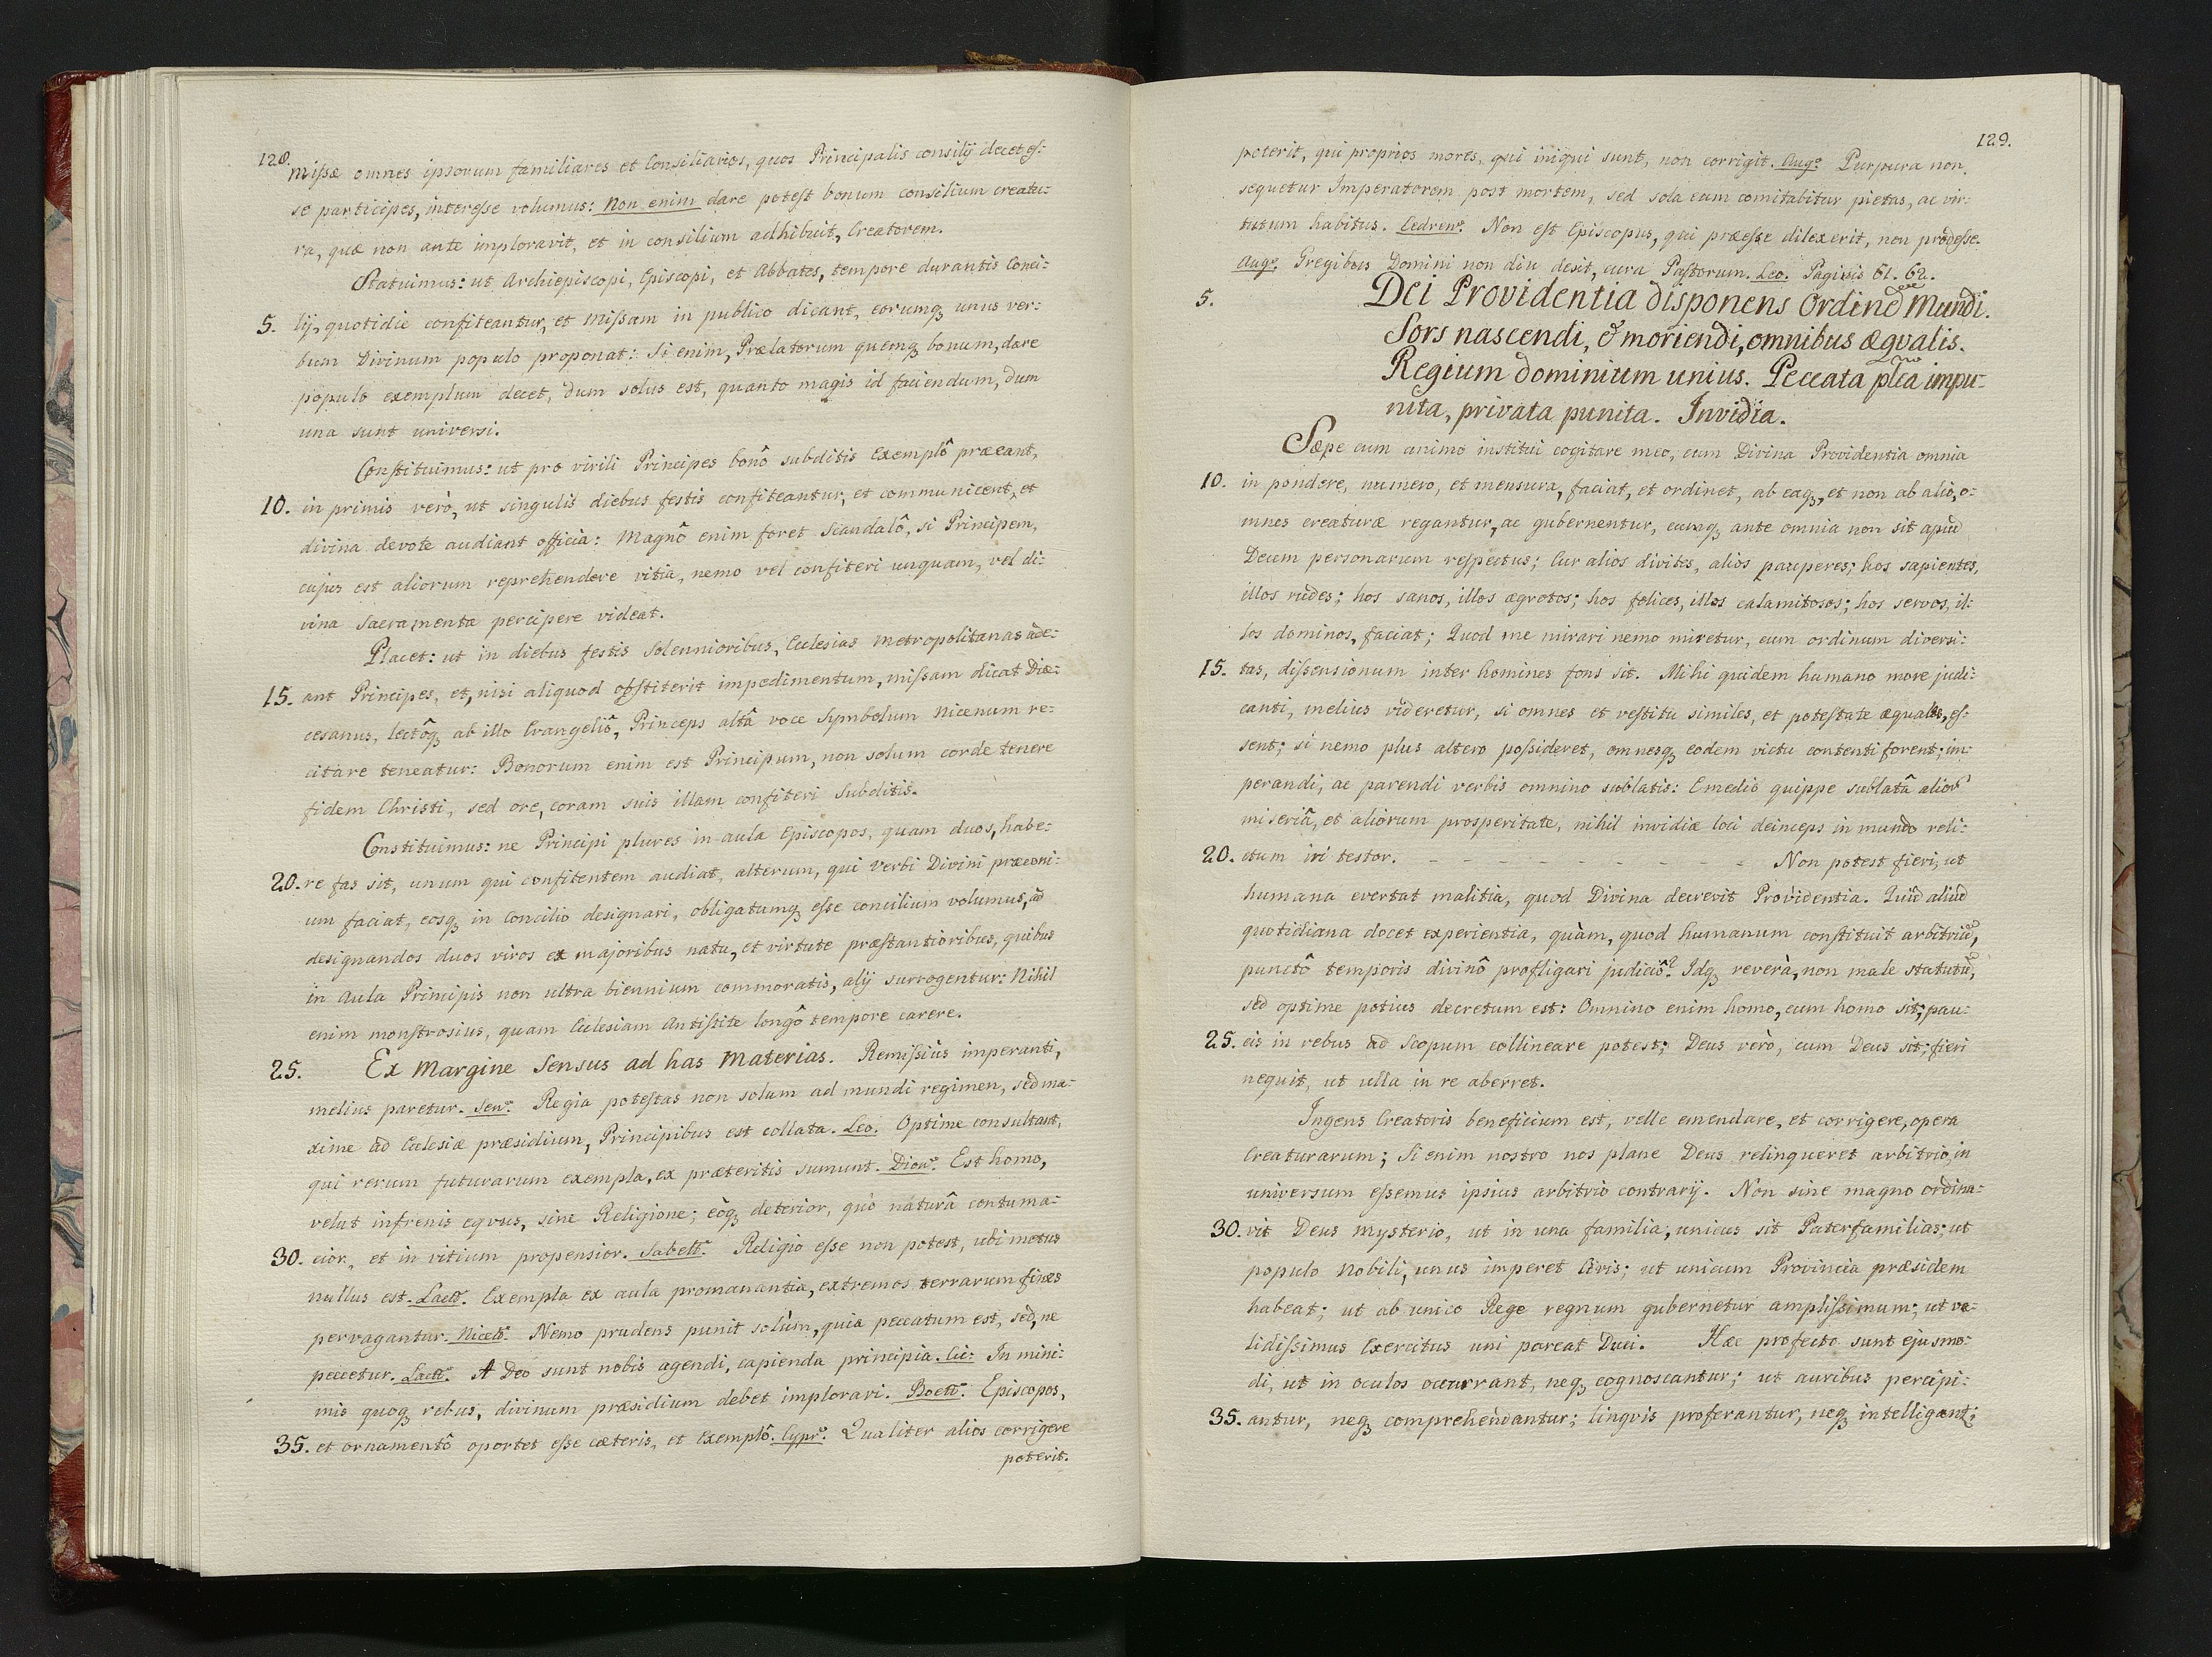 128.
missæ omnes ipsorum familiares et Consiliarios, quos Principalis consilij decet es:
se participes, interesse volumus: Non enim dare potest bonum consilium creatu:
ra, quæ non ante imploravit, et in consilium adhibuit, Creatorem.
Statuimus: ut Archiepiscopi, Episcopi, et Abbates, tempore durantis Conci:
5. lij, quotidie confiteantur, et Missam in publico dicant, eorumq₃ unus ver:
bum Divinum populo proponat: Si enim, Prælatorum quemq₃ bonum, dare
populo exemplum decet, dum solus est, quanto magis id faciendum, dum
una sunt universi.
Constituimus: ut pro virili Principes bonô subditis Exemplô præeant,
10. in primis verò, ut singulis diebus festis confiteantur, et communicent, et
divina devote audiant officia: Magnô enim foret Scandalô, si Principem,
cujus est aliorum reprehendere vitia, nemo vel confiteri unquam, vel di:
vina Sacramenta percipere videat.
Placet: ut in diebus festis Solennioribus, Ecclesias Metropolitanas ade:
15. ant Principes, et, nisi aliquod obstiterit impedimentum, missam dicat Diæ:
cesanus, lectôq₃ ab illo Evangeliô, Princeps altâ voce Symbolum Nicenum re:
citare teneatur: Bonorum enim est Principum, non solum corde tenere
fidem Christi, sed ore, coram suis illam confiteri Subditis.
Constituimus: ne Principi plures in aula Episcopos, quam duos, habe:
20. re fas sit, unum qui confitentem audiat, alterum, qui Verbi Divini præconi:
um faciat, eosq₃ in Concilio designari, obligatumq₃ esse concilium volumus, ad
designandos duos viros ex majoribus natu, et virtute præstantioribus, quibus
in Aula Principis non ultra biennium commoratis, alij surrogentur: Nihil
enim monstrosius, quam Ecclesiam Antistite longô tempore carere.
25. Ex Margine Sensus ad has Materias. Remissiùs imperanti,
melius paretur. Sen: Regia potestas non solum ad mundi regimen, sed ma:
xime ad Ecclesiæ præsidium, Principibus est collata. Leo. Optime consultant,
qui rerum futurarum exempla, ex præteritis sumunt. Dion: Est homo,
velut infrenis eqvus, sine Religione; eòq₃ deterior, quò naturâ contuma:
30. cior, et in vitium propensior. Sabell: Religio esse non potest, ubi metus
nullus est. Lact: Exempla ex aula promanantia, extremos terrarum fines
pervagantur. Nicet: Nemo prudens punit solùm, quia peccatum est, sed, ne
peccetur. Lact: A Deo sunt nobis agendi, capienda principia. Cic: In mini:
mis quoq₃ rebus, divinum præsidium debet implorari. Boet: Episcopos,
35. et ornamentô oportet esse cæteris, et Exemplô. Cypr: Qualiter alios corrigere
poterit.
129.
poterit, qui proprios mores, qui iniqui sunt, non corrigit. Aug: Purpura non
sequetur Imperatorem post mortem, sed sola eum comitabitur pietas, ac vir:
tutum habitus. Cedren: Non est Episcopus, qui præesse dilexerit, non prodesse.
Aug: Gregibus Domini non diu desit, cura Pastorum. Leo. Paginis 61. 62.
5. Dei Providentia disponens Ordinem Mundi.
Sors nascendi, & moriendi, omnibus æqvalis.
Regium dominium unius. Peccata plca impu-
nita, privata punita. Invidia.
Sæpe cum animo institui cogitare meo, cum Divina Providentia omnia
10. in pondere, numero, et mensura, faciat, et ordinet, ab eaq₃, et non ab alio, o:
mnes creaturæ regantur, ac gubernentur, cumq₃ ante omnia non sit apud
Deum personarum respectus; Cur alios divites, alios pauperes; hos sapientes,
illos rudes; hos sanos, illos ægrotos; hos felices, illos calamitosos; hos servos, il:
los dominos, faciat; Quod me mirari nemo miretur, cum ordinum diversi:
15. tas, dissensionum inter homines fons sit. Mihi quidem humano more judi:
canti, melius videretur, si omnes et vestitu similes, et potestate æquales, es:
sent; si nemo plus altero possideret, omnesq₃ eodem victu contenti forent; im:
perandi, ac parendi verbis omnino sublatis: E medio quippe sublatâ alior
miseriâ, et aliorum prosperitate, nihil invidiæ loci deinceps in mundo reli:
20. ctum iri testor. - - - - - - - - - - - - Non potest fieri, ut
humana evertat malitia, quod Divina decrevit Providentia. Quid aliud
quotidiana docet experientia, quàm, quod humanum constituit arbitrium,
punctô temporis divinô profligari judiciô? Idq₃ reverà, non male statutum,
sed optime potius decretum est: Omnino enim homo, cum homo sit, pau:
25. cis in rebus ad Scopum collineare potest; Deus verò, cum Deus sit; fieri
nequit, ut ulla in re aberret.
Ingens Creatoris beneficium est, velle emendare, et corrigere, opera
Creaturarum; Si enim nostro nos plane Deus relinqueret arbitrio, in
universum essemus ipsius arbitrio contrarij. Non sine magno ordina:
30. vit Deus Mysterio, ut in una familia, unicus sit Paterfamilias; ut
populo Nobili, unus imperet Civis; ut unicum Provincia præsidem
habeat; ut ab unico Rege regnum gubernetur amplissimum; ut va:
lidissimus Exercitus uni pareat Duci. Hæc profecto sunt ejusmo:
di, ut in oculos occurrant, neq₃ cognoscantur; ut auribus percipi:
35. antur, neq₃ comprehendantur; lingvis proferantur, neq₃ intelligant: